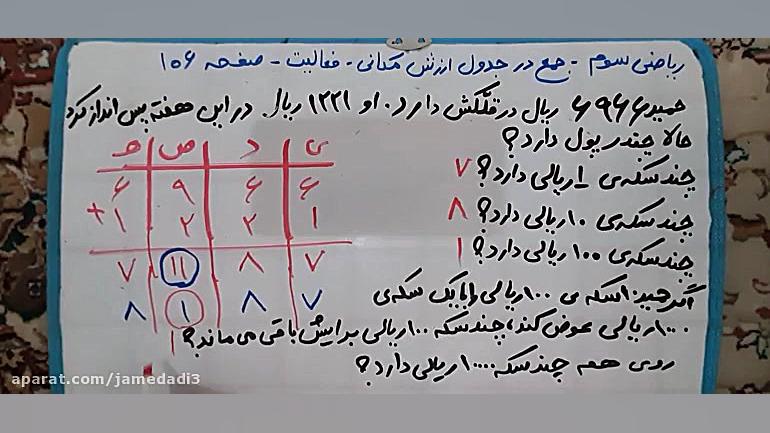 ریاضی سوم - جمع در جدول ارزش مکانی - فعالیت - صفحه ۱۰۶
حمید ۶۹۶۶ ریال در قلکش دارد. او ۱۲۲۱ ریال در این هفته پس انداز کرد
حالا چقدر پول دارد؟
چند سکه‌ی ۱ ریالی دارد؟ ۷
چند سکه‌ی ۱۰ ریالی دارد؟ ۸
چند سکه‌ی ۱۰۰ ریالی دارد؟ ۱
اگر حمید ۱۰ سکه ی ۱۰۰ ریالی را با یک سکه‌ی
۱۰۰۰ ریالی عوض کند، چند سکه ۱۰۰ ریالی برایش باقی می ماند؟ ۱
روی هم چند سکه ۱۰۰۰ ریالی دارد؟
ه ص د ی
۶ ۹ ۶ ۶
+ ۱ ۲ ۲ ۱
۷ ۱۱ ۸ ۷
۸ ۱ ۸ ۷
aparat.com/jamedadi3